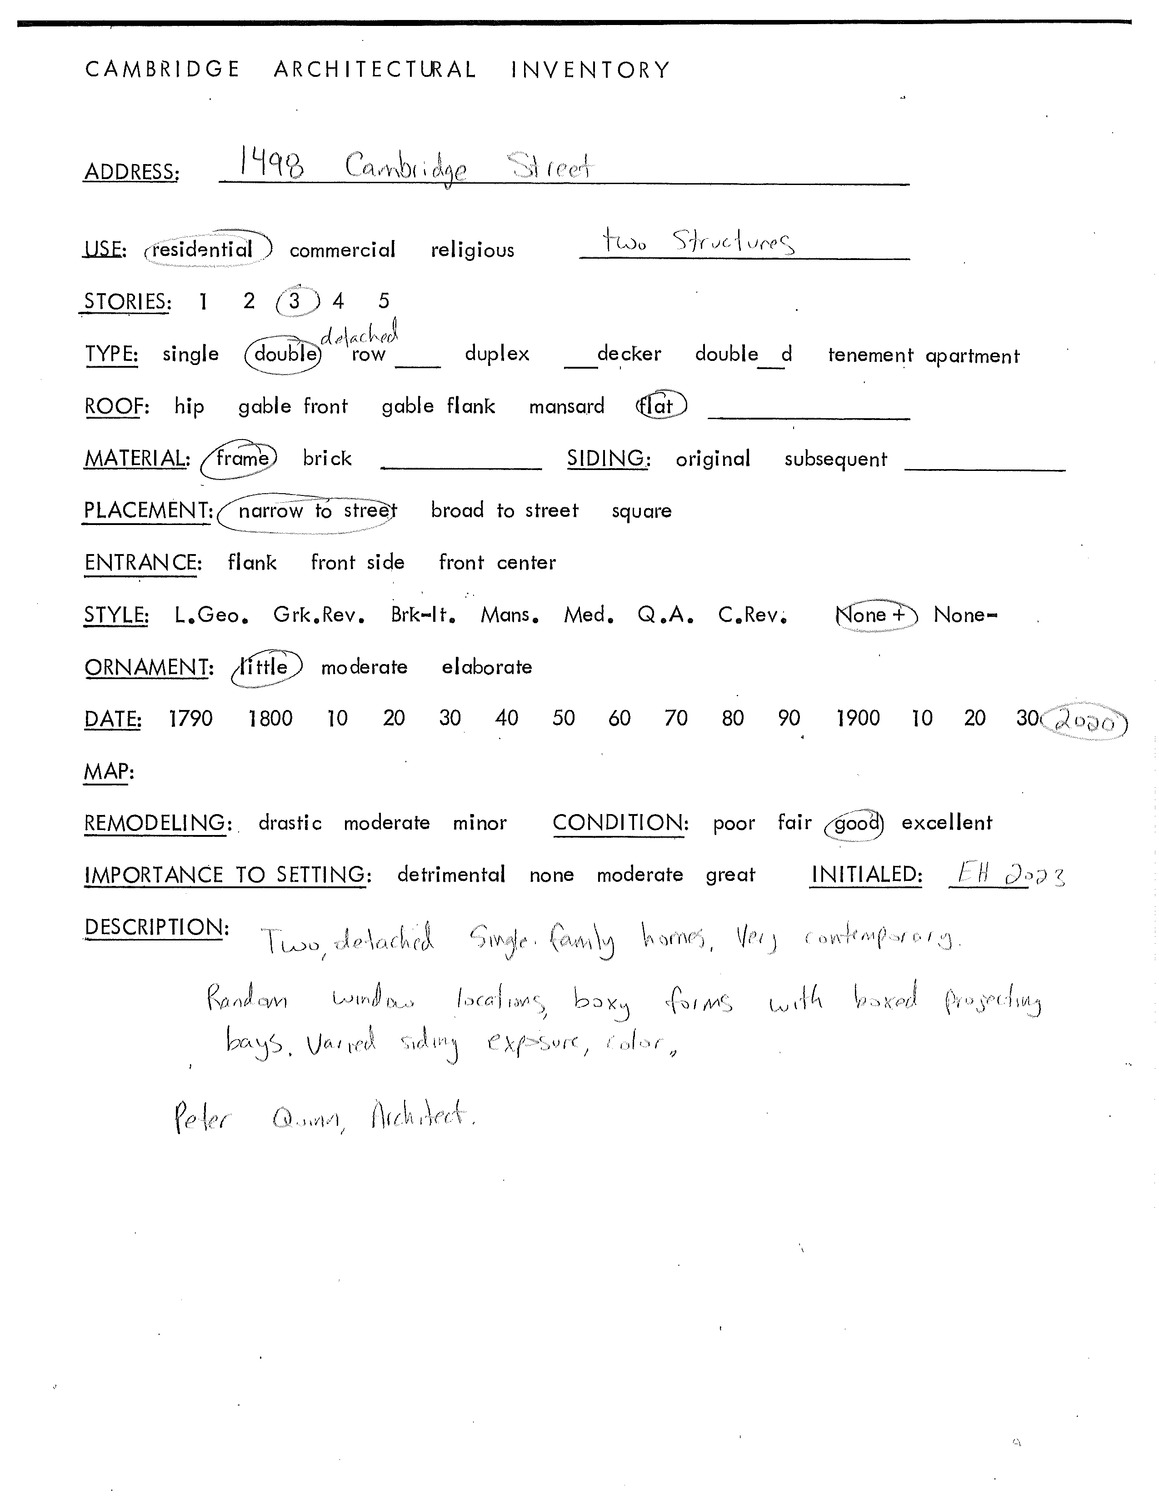 CAMBRIDGE ARCHITECTURAL INVENTORY
ADDRESS: 1498 Cambridge Street
USE: residential commercial religious two Structures
STORIES: 1 2 3 4 5
detached
TYPE: single double row ___ duplex ___decker double__d tenement apartment
ROOF: hip gable front gable flank mansard flat
MATERIAL: frame brick SIDING: original subsequent
PLACEMENT: narrow to street broad to street square
ENTRANCE: flank front side front center
STYLE: L.Geo. Grk.Rev. Brk-It. Mans. Med. Q.A. C.Rev. None + None-
ORNAMENT: little moderate elaborate
DATE: 1790 1800 10 20 30 40 50 60 70 80 90 1900 10 20 30 2020
MAP:
REMODELING: drastic moderate minor CONDITION: poor fair good excellent
IMPORTANCE TO SETTING: detrimental none moderate great INITIALED: EH 2023
DESCRIPTION: Two, detached Single-family homes, Very contemporary.
Random window locations, boxy forms with boxed projecting
bays. Varied siding exposure, color.
Peter Quinn, Architect.